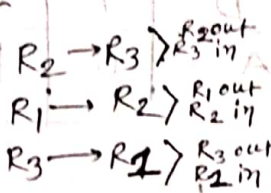 R2 → R3 > R2 out
R3 in
R1 → R2 > R1 out
R2 in
R3 → R1 > R3 out
R1 in